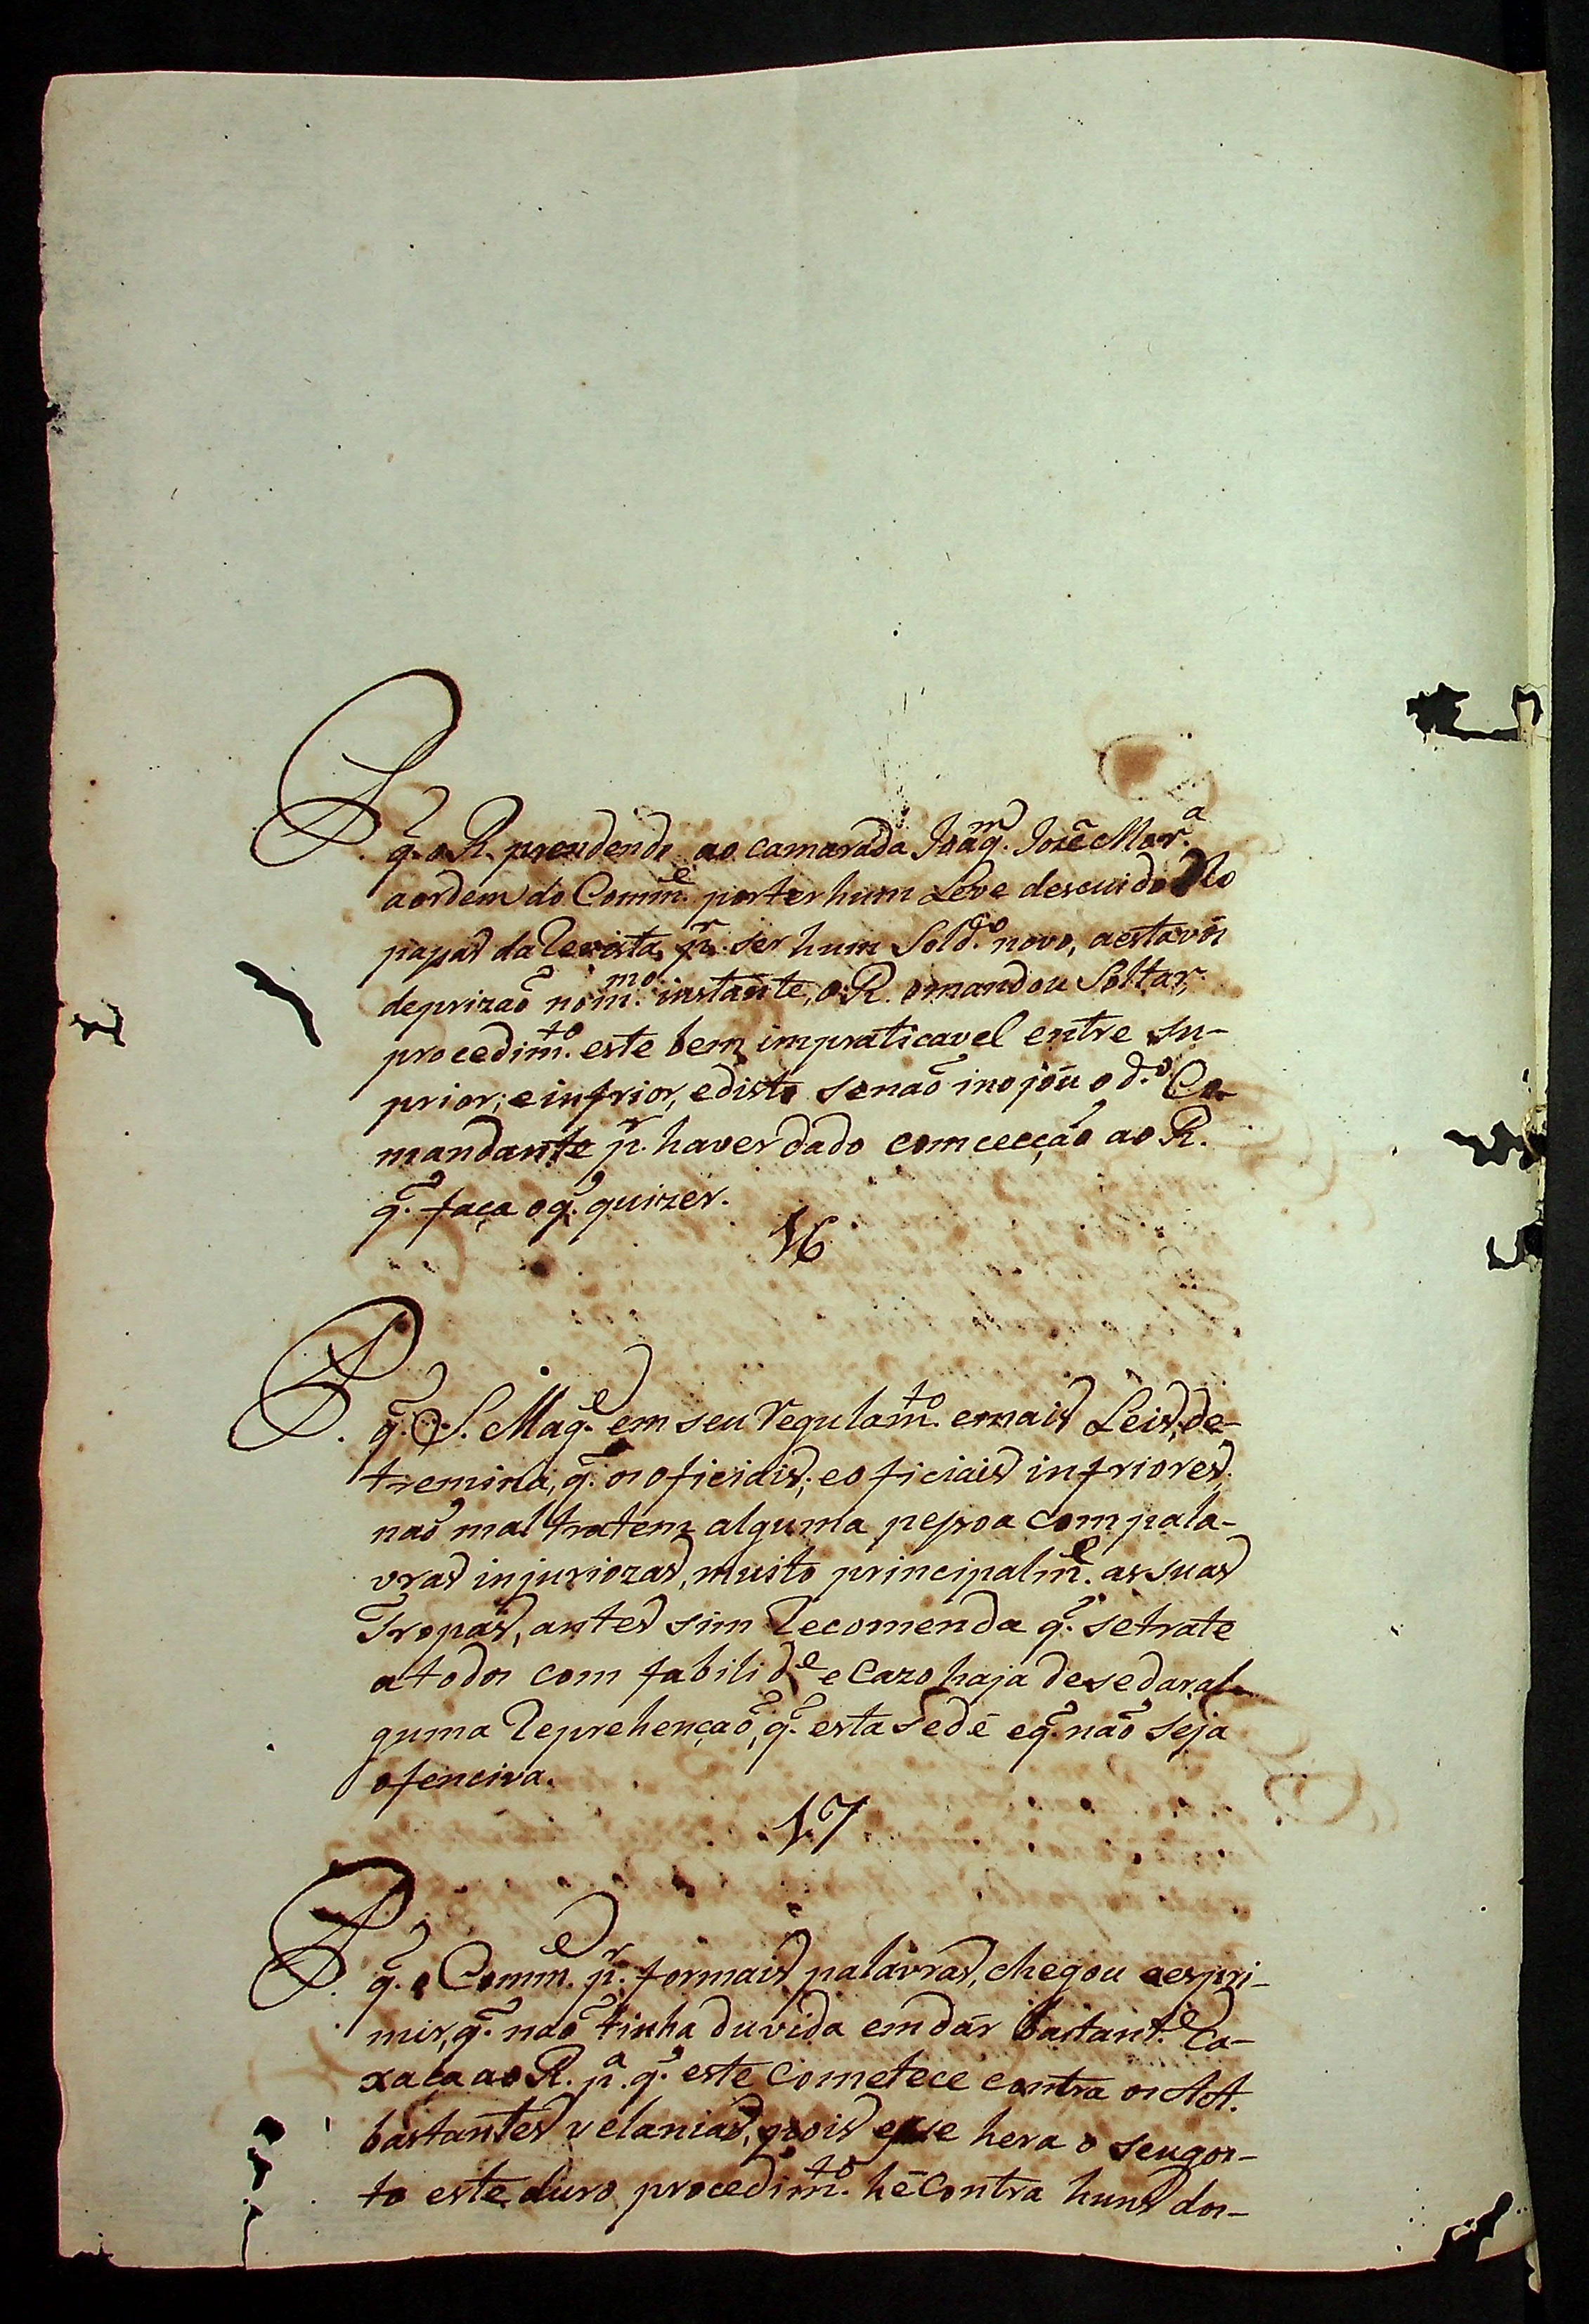 P. q. o R. prendendo ao camarada Joaq.m Jozé Mor.a
aordem do Comm.e porter hum Leve descuido No
papas da Revista, p.r ser hum Sold.o novo, aestavós
deprizaõ nom.mo instante, o R. omandou Soltar,
procedim.to este bem impraticavel entre su-
prior; einfrior, edisto senaõ inojou o d.o Co-
mandante p.r haver dado comcecção ao R.
q. faça oq. quizer.
16
P. q. S. Mag.e em seu regulam.to emais Leis, de-
tremina, q. os oficiais; eoficiais infriores,
naõ mal tratem alguma pessoa com pala-
vras injuriozas, muito principalm.e as suas
Tropas, antes sim Recomenda q. setrate
atodos com fabilid.e e Cazo haja desedar al-
guma Reprehençaõ, q. esta sedé eq. naõ seja
ofenciva.
17
P. q. o Comm.e p.r formais palavras, chegou aespri-
mir, q. naõ tinha duvida emdár bastant.e Ca-
xaca ao R. p.a q. este Cometece contra os AA.
bastantes velanias, pois esse hera o seu gos-
to este duro procedim.to hé Contra huns dos-